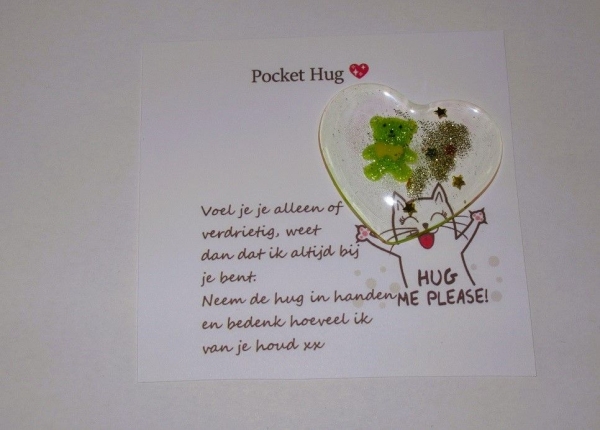 Pocket Hug
Voel je je alleen of
verdrietig, weet
dan dat ik altijd bij
je bent.
Neem de hug in handen
en bedenk hoeveel ik
van je houd xx
HUG
ME PLEASE!